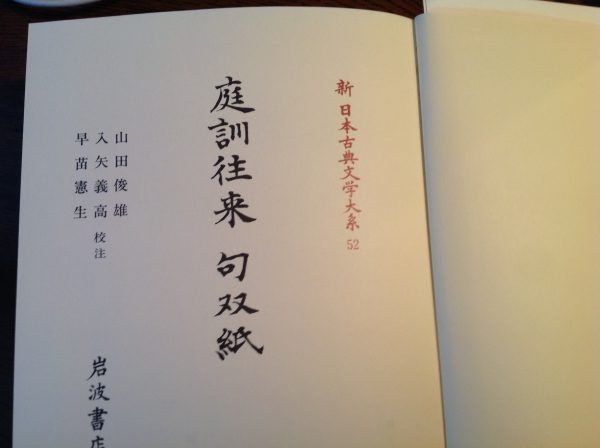 新 日本古典文学大系 52
庭訓往来 句双紙
山田俊雄
入矢義高 校注
早苗憲生
岩波書店